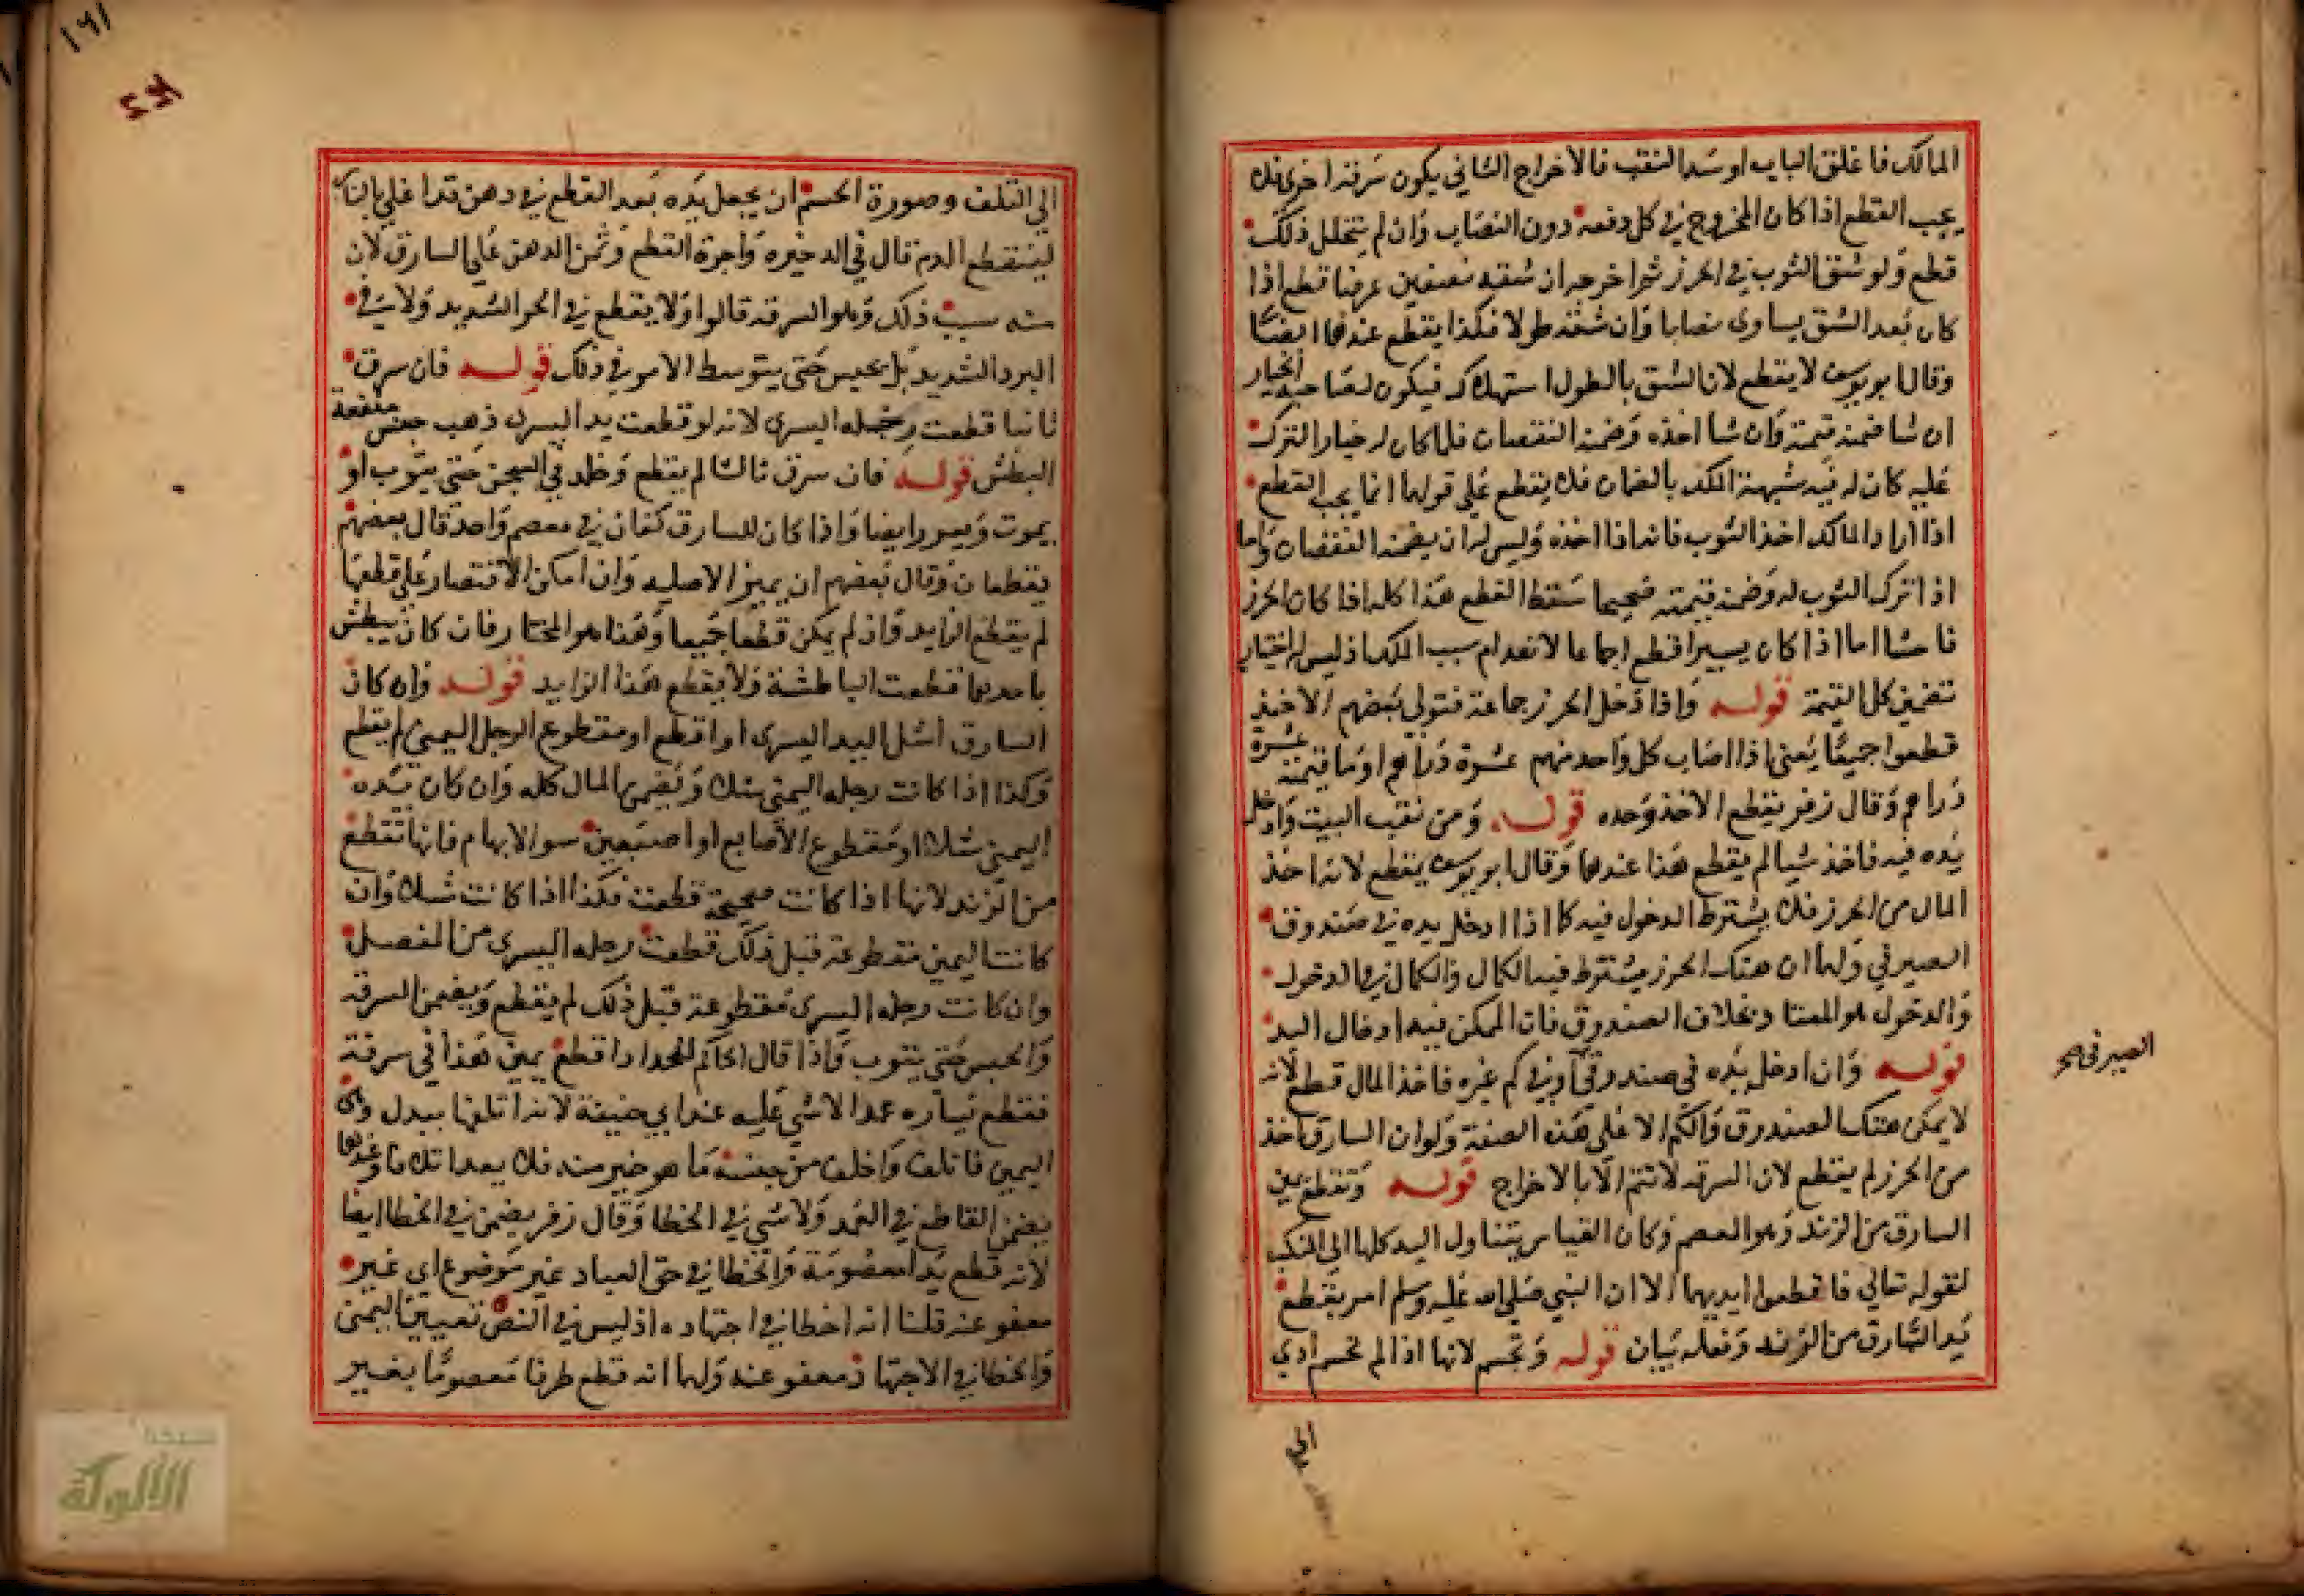 المالك فاغلق الباب او سد النقب فالاخراج الثاني يكون سرقة اخرى فلا
يجب القطع اذا كان المخروج في كل دفعة دون النصاب وان لم يتخلل ذلك
قطع ولو شق الثوب في الحرز ثم اخرجه ان شقه نصفين عرضا قطع اذا
كان بعد الشق يساوي نصابا وان شقه طولا فكذا يقطع عندهما ايضا
وقال ابو يوسف لا يقطع لان الشق بالطول استهلاك فيكون لصاحبه الخيار
ان شا ضمنه قيمته وان شا اخذه وضمنه النقصان فلما كان له خيار الترك
عليه كان له فيه شبهة الملك بالضمان فلا يقطع علي قولهما انما يجب القطع
اذا اراد المالك اخذ الثوب فانه اذا اخذه وليس له ان يضمنه النقصان واما
اذا ترك الثوب له وضمنه قيمته صحيحا سقط القطع هذا كله اذا كان الخرق
فاحشا اما اذا كان يسيرا قطع اجماعا لانعدام سبب الملك اذ ليس له اختيار
تضمين كل القيمة قوله واذا دخل الحرز جماعة فتولي بعضهم الاخذ
قطعوا جميعا يعني اذا اصاب كل واحد منهم عشرة دراهم او ما قيمته عشرة
دراهم وقال زفر يقطع الاخذ وحده قوله ومن نقب البيت وادخل
يده فيه فاخذ شيا لم يقطع هذا عندهما وقال ابو يوسف يقطع لانه اخذ
المال من الحرز فلا يشترط الدخول فيه كما اذا ادخل يده في صندوق
الصيرفي ولهما ان هتك الحرز يشترط فيه الكمال والكمال في الدخول
والدخول هو المعتاد بخلاف الصندوق فان الممكن فيه ادخال اليد
قوله وان ادخل يده في صندوق او في كم غيره فاخذ المال قطع لانه
لا يمكن هتك الصندوق والكم الا علي هذه الصفة ولو ان السارق اخذ
من الحرز لم يقطع لان السرقة لا تتم الا بالاخراج قوله وتقطع يمين
السارق من الزند وهو المعصم وكان القياس يتناول اليد كلها الى المنكب
لقوله تعالي فاقطعوا ايديهما الا ان النبي صلي الله عليه وسلم امر بقطع
يد السارق من الزند وفعله بيان قوله وتحسم لانها اذا لم تحسم ادي
الصيرفي صح
الي
١٦١
الي التلف وصورة الحسم ان يجعل يده بعد القطع في دهن قد اغلي بالنار
لينقطع الدم قال في الدخيره واجرة القطع وثمن الدهن علي السارق لان
منه سبب ذلك وهو السرقة قالوا ولا يقطع في الحر الشديد ولا في
البرد الشديد بل يحبس حتى يتوسط الامر في ذلك قوله فان سرق
ثانيا قطعت رجله اليسري لانه لو قطعت يده اليسرى ذهب جنس منفعة
البطش قوله فان سرق ثالثا لم يقطع وخلد في السجن حتي يتوب او
يموت ويعزر ايضا واذا كان للسارق كفان في معصم واحد قال بعضهم
يقطعان وقال بعضهم ان يميز الاصليه وان امكن الاقتصار علي قطعها
لم يقطع الزايد وان لم يمكن قطعا جميعا وهذا هو المختار فان كان يبطش
باحديهما قطعت الباطشة ولا يقطع هذا الزايد قوله وان كان
السارق اشل اليد اليسرى او اقطع او مقطوع الرجل اليمني لم يقطع
وكذا اذا كانت رجله اليمنى شلا ويضمن المال كله وان كان يده
اليمنى شلا او مقطوع الاصابع او اصبعين سوا الابهام فانها تقطع
من الزند لانها اذا كانت صحيحة قطعت فكذا اذا كانت شلا وان
كانت اليمين مقطوعة قبل ذلك قطعت رجله اليسرى من المفصل
وان كانت رجله اليسرى مقطوعة قبل ذلك لم يقطع ويضمن السرقة
والحبس حتى يتوب واذا قال الحاكم للحداد اقطع يمين هذا في سرقة
فقطع يساره عمدا لا شي عليه عند ابي حنيفة لانه اتلفها ببدل وهي
اليمين فاتلف واخلف من جنسه ما هو خير منه فلا يعد اتلافا وعندهما
يضمن القاطع في العمد ولا شي في الخطا وقال زفر يضمن في الخطا ايضا
لانه قطع يدا معصومة والخطا في حق العباد غير موضوع اي غير
معفو عنه قلنا انه اخطا في اجتهاده اذ ليس في النص تعيين اليمنى
والخطا في الاجتهاد معفو عنه ولهما انه قطع طرفا معصوما بغير
الألوكة